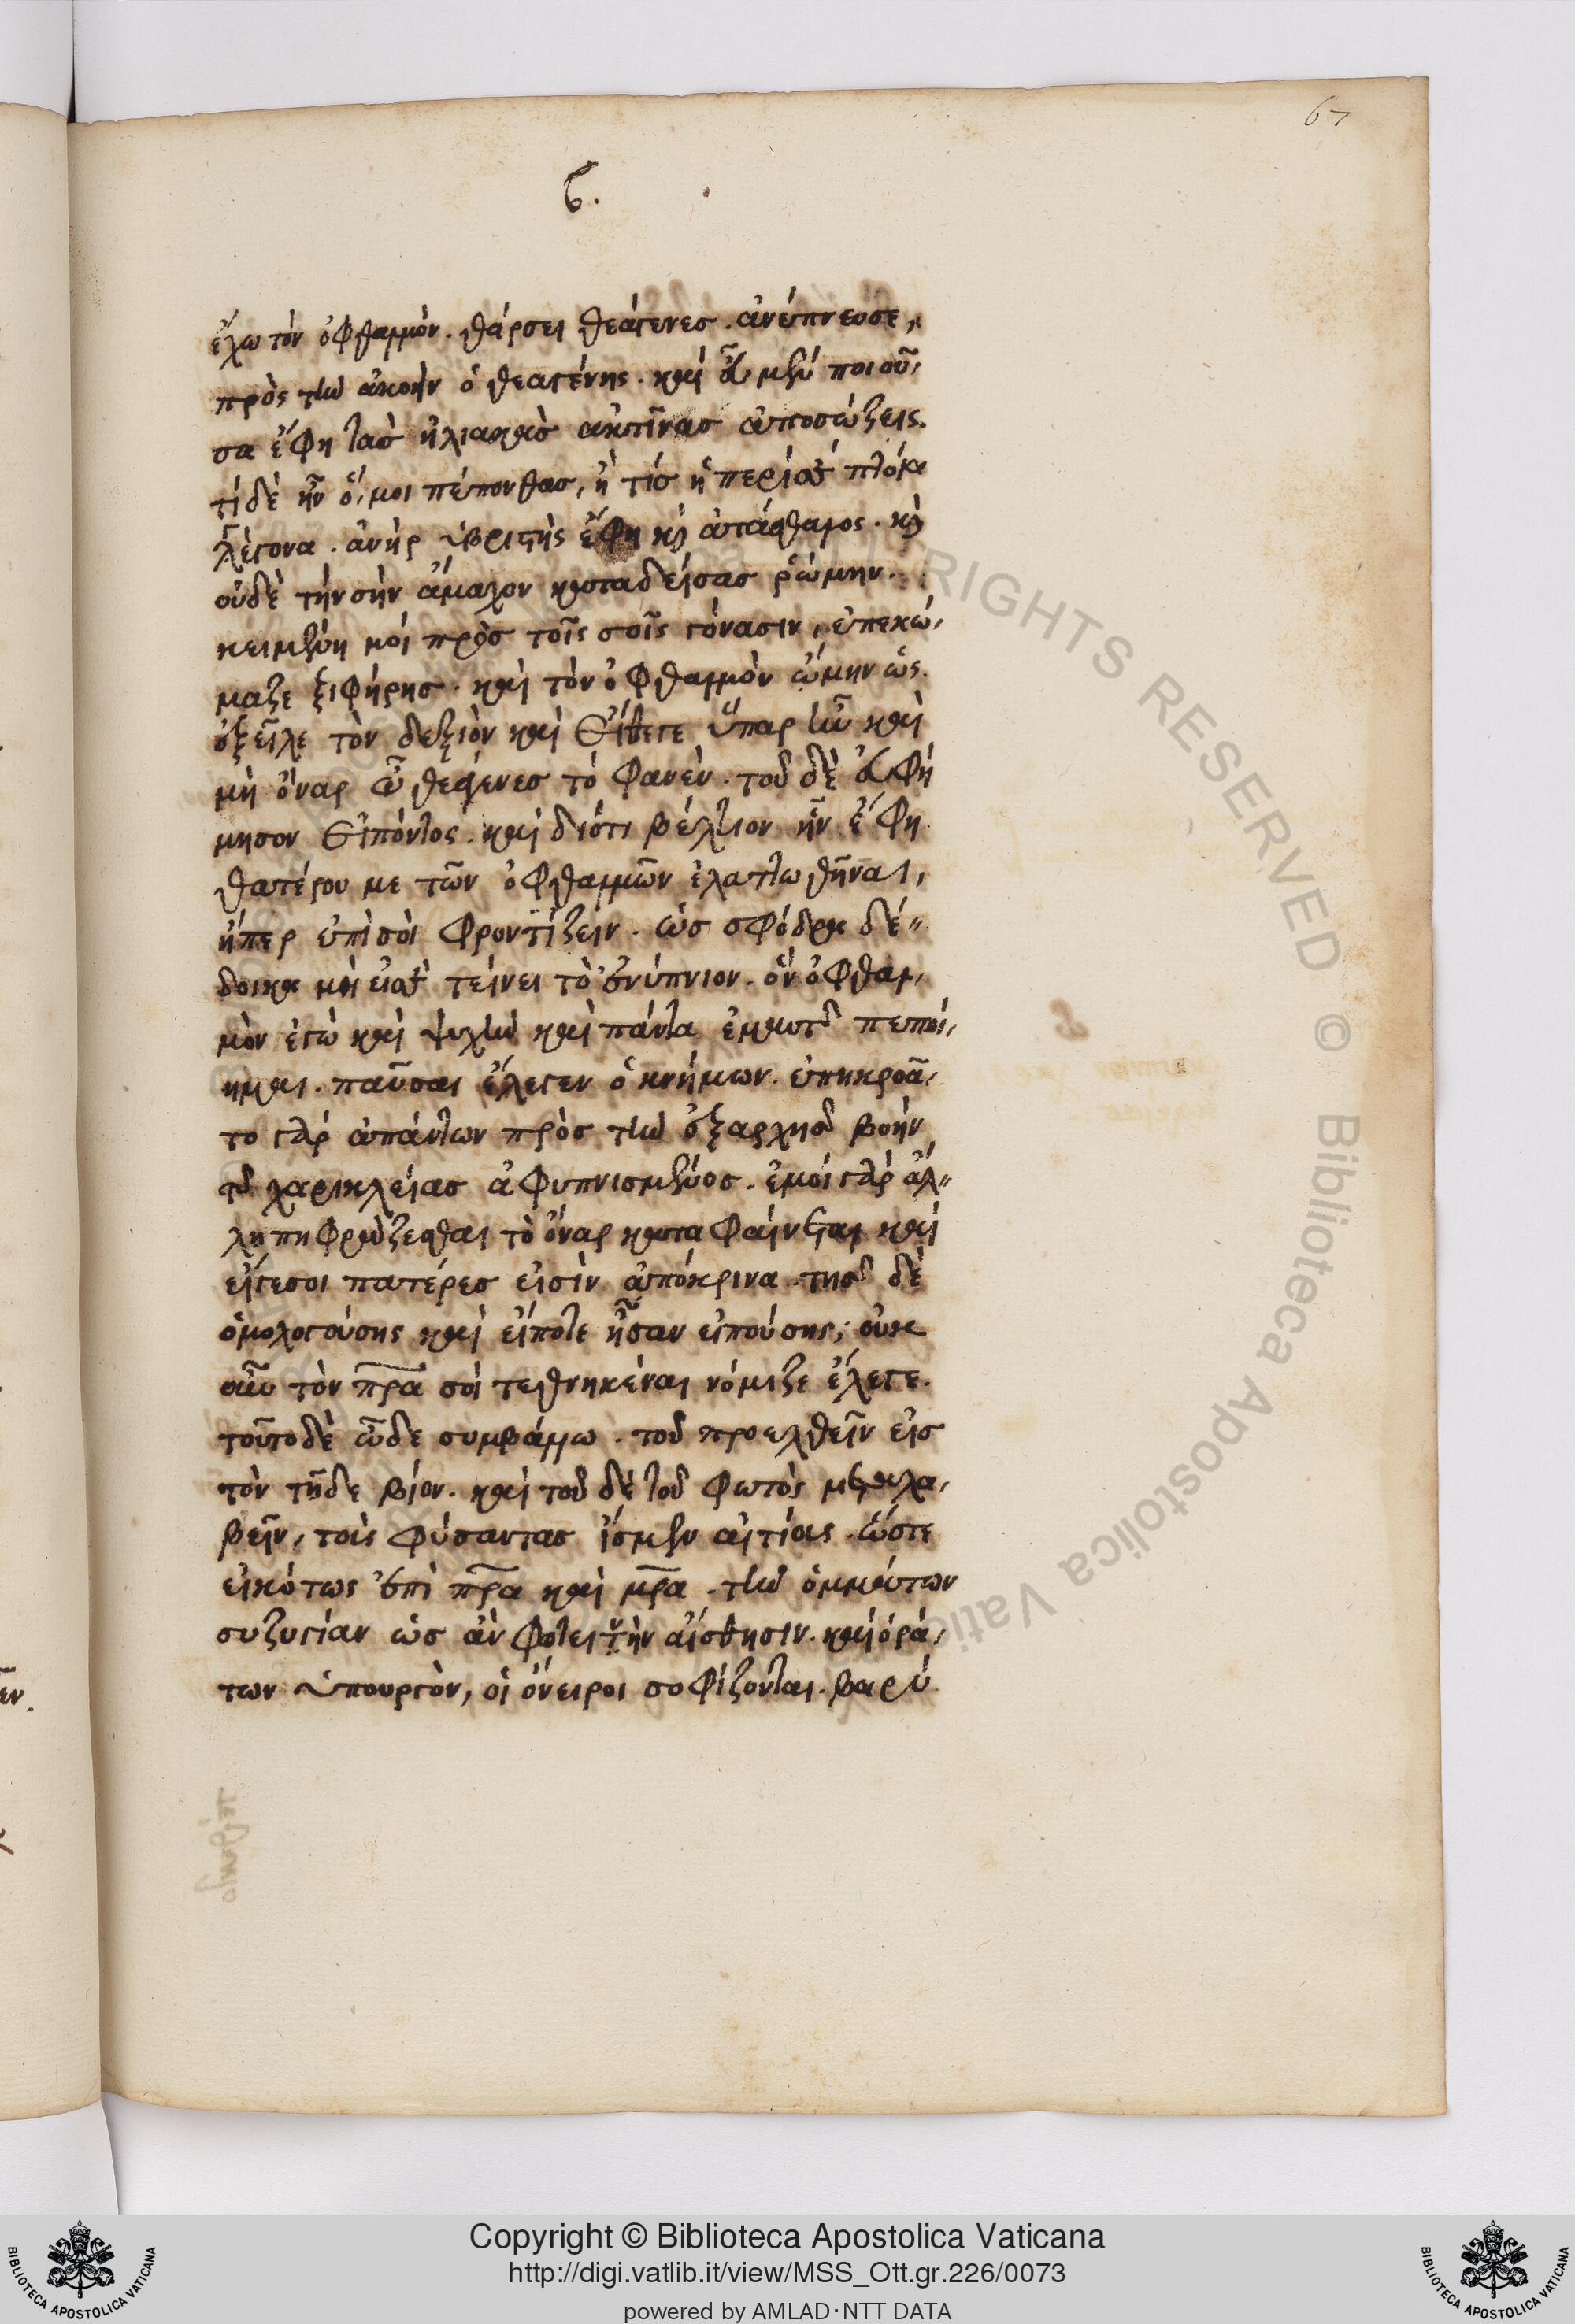 67
β.
ἔχω τὸν ὀφθαλμὸν. θάρσει θεάγενες. ἀνέπνευσε,
πρὸς τὴν ἀκοὴν ὁ θεαγένης. καὶ εὖ μὲν ποιοῦ,
σα ἔφη τὰς ἡλιακὰς ἀκτῖνας ἀποσώζεις.
τί δὲ ἦν ὅ, μοι πέπονθας, ἢ τίς ἡ περί σε πτόκα
λέγονα. ἀνὴρ ὑβριστὴς ἔφη κὶ ἀτάσθαλος. κὶ
οὐδὲ τὴν σὴν ἄμαχον καταδείσας ῥώμην.
κειμένη μοί πρὸς τοῖς σοῖς γόνασιν, ἐπεκώ,
μαζε ξιφήρης. καὶ τὸν ὀφθαλμὸν ᾤμην ὡς.
ἐξεῖλε τὸν δεξιὸν καὶ εἴθεγε ὕπαρ ἦν καὶ
μὴ ὄναρ ὦ θεάγενες τὸ φανὲν. τοῦ δὲ εὐφή
μησον εἰπόντος. καὶ διότι βέλτιον ἦν ἔφη
θατέρου με τῶν ὀφθαλμῶν ἐλαττωθῆναι,
ἤπερ ἐπὶ σοὶ φροντίζειν. ὡς σφόδρα δέ,,
δοικα μὴ εἰς σὲ τείνει τὸ ἐνύπνιον. ὃν ὀφθαλ,
μὸν ἐγὼ καὶ ψυχὴν καὶ πάντα ἐμαυτῆς πεποί,
ημαι. παῦσαι ἔλεγεν ὁ κνήμων. ἐπηκροᾶ,
το γὰρ ἁπάντων πρὸς τὴν ἐξαρχῆς βοὴν
τῆς χαρικλείας ἀφυπνισμένος. ἐμοὶ γὰρ ἄλ,,
λη πη φράζεσθαι τὸ ὄναρ καταφαίνεται καὶ
εἴγεσοι πατέρες εἰσὶν ἀπόκρινα. τῆς δὲ
ὁμολογούσης καὶ εἴποτε ἦσαν εἰπούσης, οὐκ
οὖν τὸν πρα σοί τεθνηκέναι νόμιζε ἔλεγε.
τοῦτο δὲ ὧδε συμβάλλω. τοῦ προελθεῖν εἰς
τὸν τῇδε βίον. καὶ τοῦ δὲ τοῦ φωτὸς μεταλα,
βεῖν, τοὺς φύσαντας ἴσμεν αἰτίους. ὥστε
εἰκότως ἐπὶ πρα καὶ μρα. τὴν ὀμμάτων
συζυγίαν ὡς ἂν φωτεινὴν αἴσθησιν. καὶ ὁρά,
των ὑπουργὸν, οἱ ὄνειροι σοφίζονται. βαρύ
ALL RIGHTS RESERVED © Biblioteca Apostolica Vaticana
Copyright © Biblioteca Apostolica Vaticana
http://digi.vatlib.it/view/MSS_Ott.gr.226/0073
powered by AMLAD·NTT DATA
BIBLIOTECA APOSTOLICA VATICANA
BIBLIOTECA APOSTOLICA VATICANA